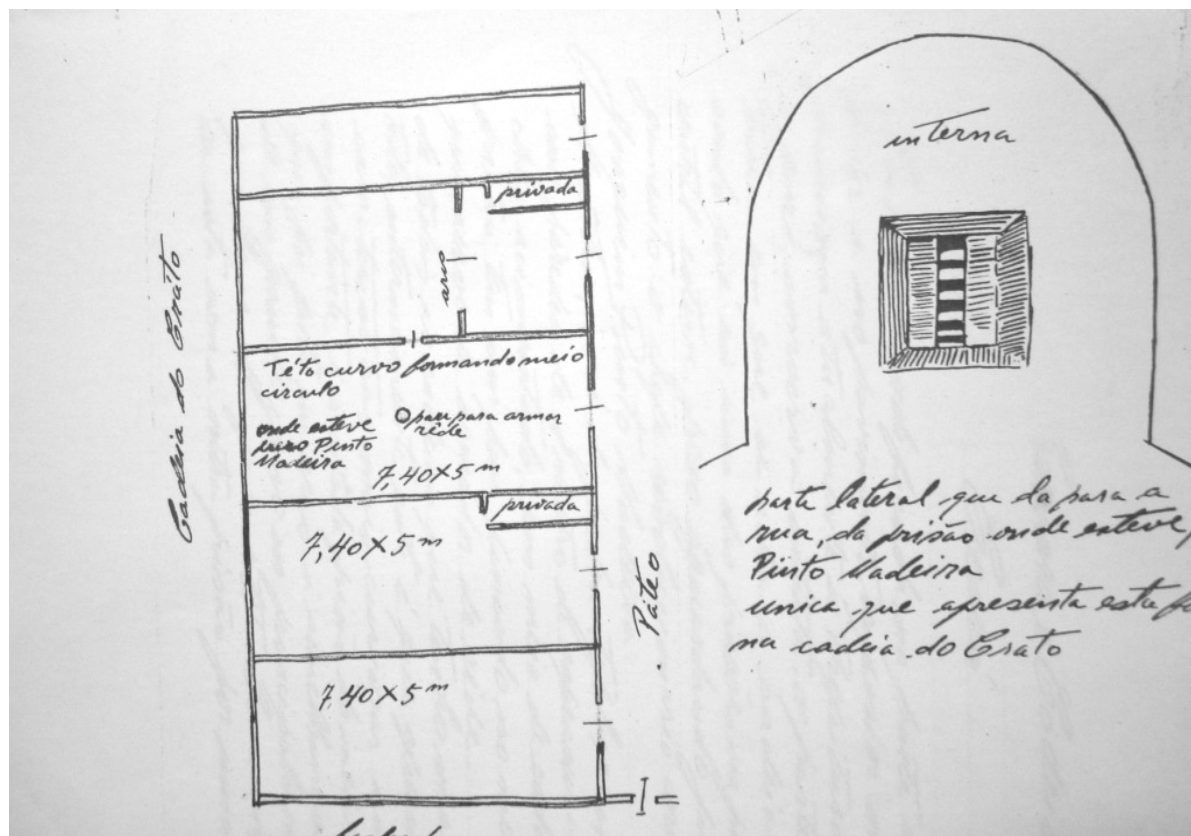 Cadeia do Crato
privada
arco
Této curvo formando meio
circulo
onde esteve
preso Pinto
Madeira
O para armar
rêde
7,40 X 5 m
privada
7,40 X 5 m
Páteo
7,40 X 5 m
interna
parte lateral que da para a
rua, da prisão onde esteve
Pinto Madeira
unica que apresenta esta
na cadeia do Crato